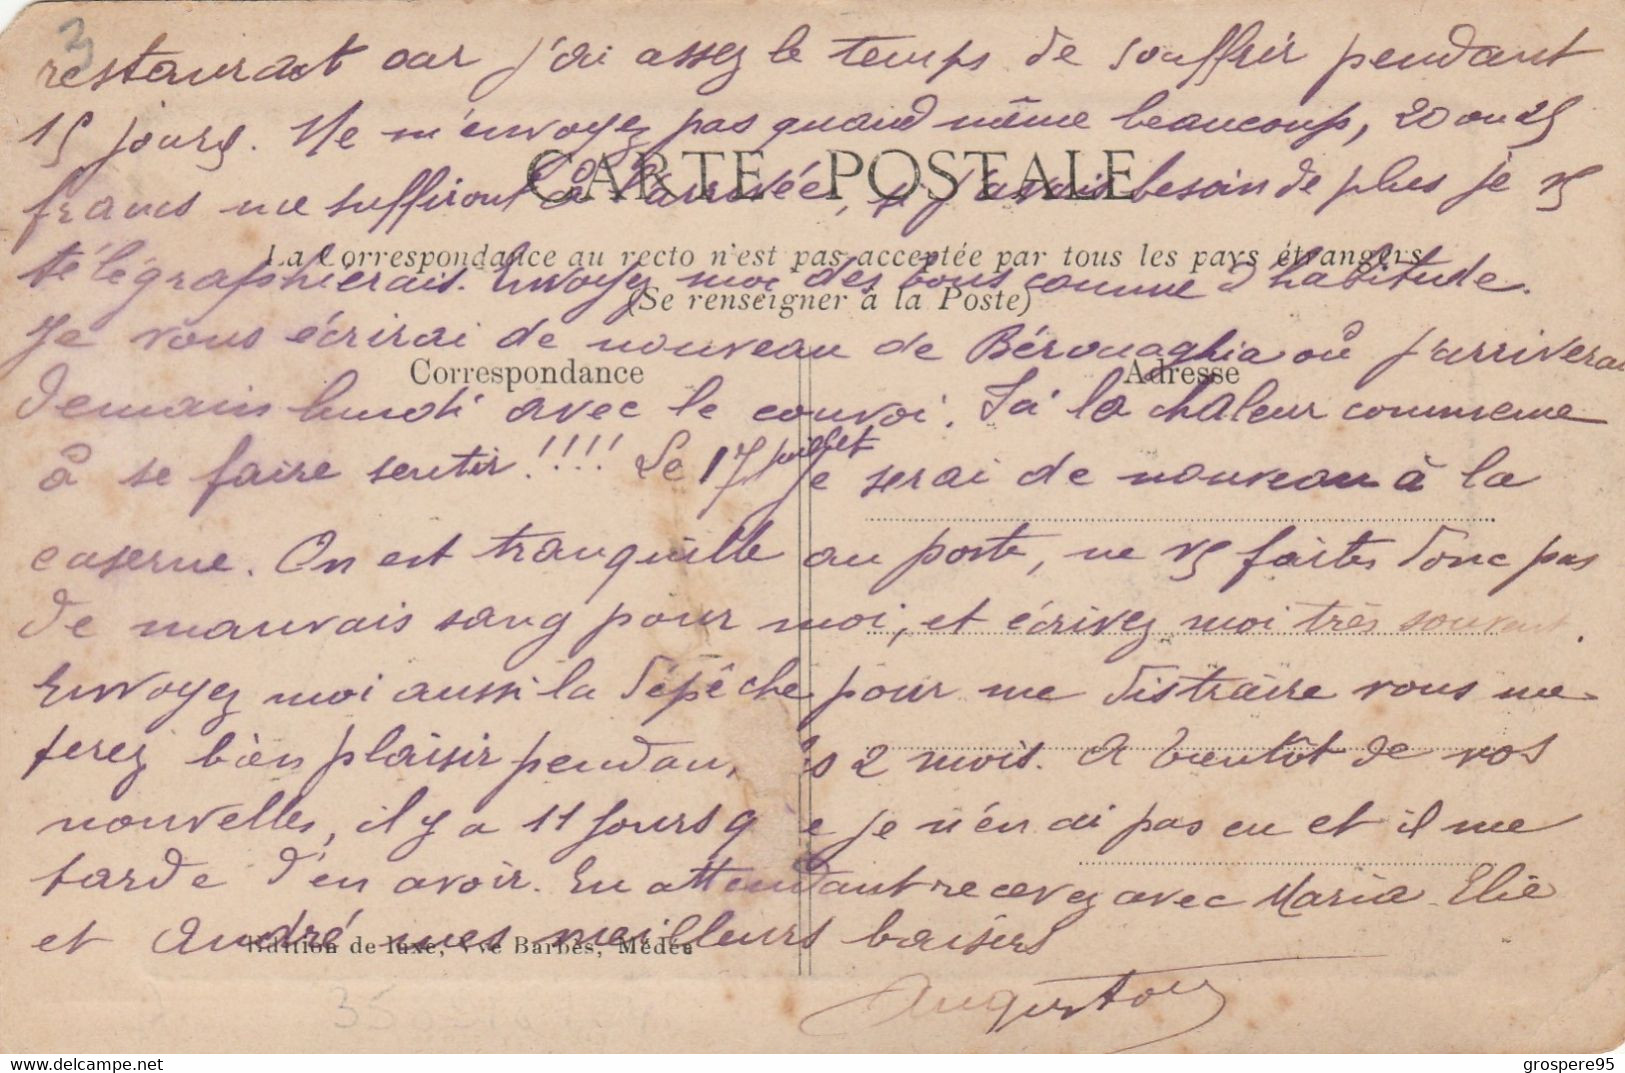 3
restaurant car j'ai assez le temps de souffrir pendant
15 jours. Ne m'envoyez pas quand même beaucoup, 20 ou 25
CARTE POSTALE
francs me suffiront à l'arrivée, si j'avais besoin de plus je vs
La Correspondance au recto n'est pas acceptée par tous les pays étrangers
télégraphierais. Envoyez moi des bons comme d'habitude.
(Se renseigner à la Poste)
Je vous écrirai de nouveau de Bérouaghia où j'arriverai
Correspondance
Adresse
demain lundi avec le convoi. Ici la chaleur commence
à se faire sentir!!!! Le 17 juillet je serai de nouveau à la
caserne. On est tranquille au poste, ne vs faites donc pas
de mauvais sang pour moi, et écrivez moi très souvent.
Envoyez moi aussi la dépêche pour me distraire vous me
ferez bien plaisir pendan 2 mois. A bientôt de vos
nouvelles, il y a 11 jours q e je n'en ai pas eu et il me
tarde d'en avoir. En attendant recevez avec Maria Elie
et André mes meilleurs baisers
Edition de luxe, Vve Barbès, Médéa
Augustou
grospere95